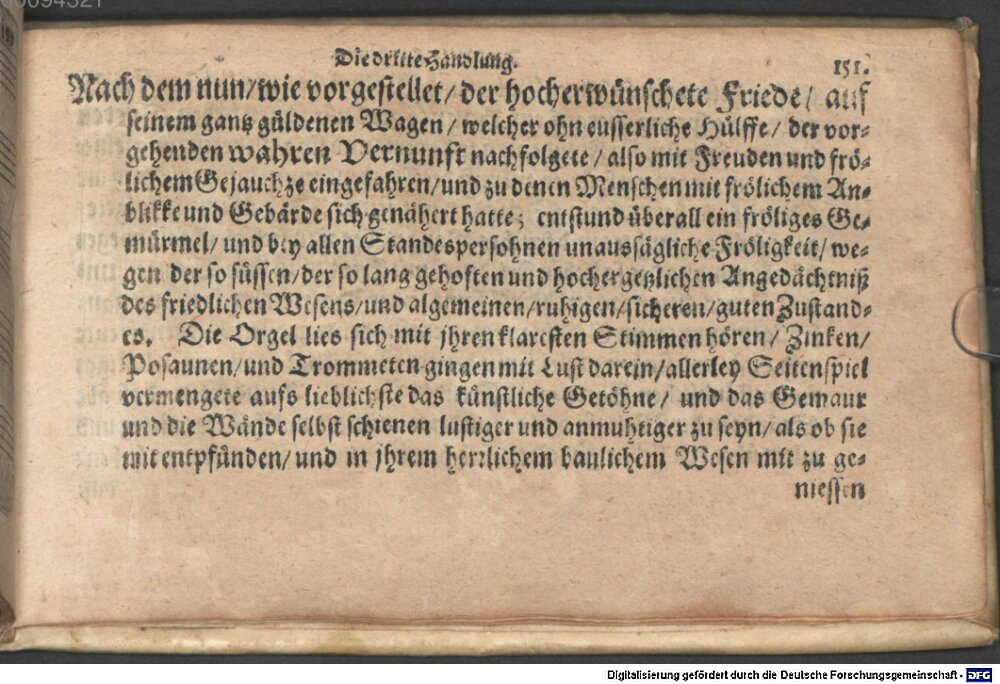 00094321
Die dritte Handlung.
151.
Nach dem nun/wie vorgestellet/ der hocherwünschete Friede/ auf
seinem gantz güldenen Wagen/ welcher ohn eusserliche Hülffe/ der vor-
gehenden wahren Vernunft nachfolgete/ also mit Freuden und frö-
lichem Gejauchze eingefahren/und zu denen Menschen mit frölichem An-
blikke und Gebärde sich genähert hatte; entstund überall ein fröliges Ge-
mürmel/ und bey allen Standespersohnen unaussägliche Fröligkeit/ we-
gen der so süssen/der so lang gehoften und hochergetzlichen Angedächtniß
des friedlichen Wesens/und algemeinen/ruhigen/sicheren/guten Zustand-
es. Die Orgel lies sich mit jhren klaresten Stimmen hören/ Zinken/
Posaunen/und Trommeten gingen mit Lust darein/allerley Seitenspiel
vermengete aufs lieblichste das künstliche Getöhne/ und das Gemaur
und die Wände selbst schienen lustiger und anmuhtiger zu seyn/als ob sie
mit entpfünden/und in jhrem herrlichem baulichem Wesen mit zu ge-
niessen
Digitalisierung gefördert durch die Deutsche Forschungsgemeinschaft - DFG